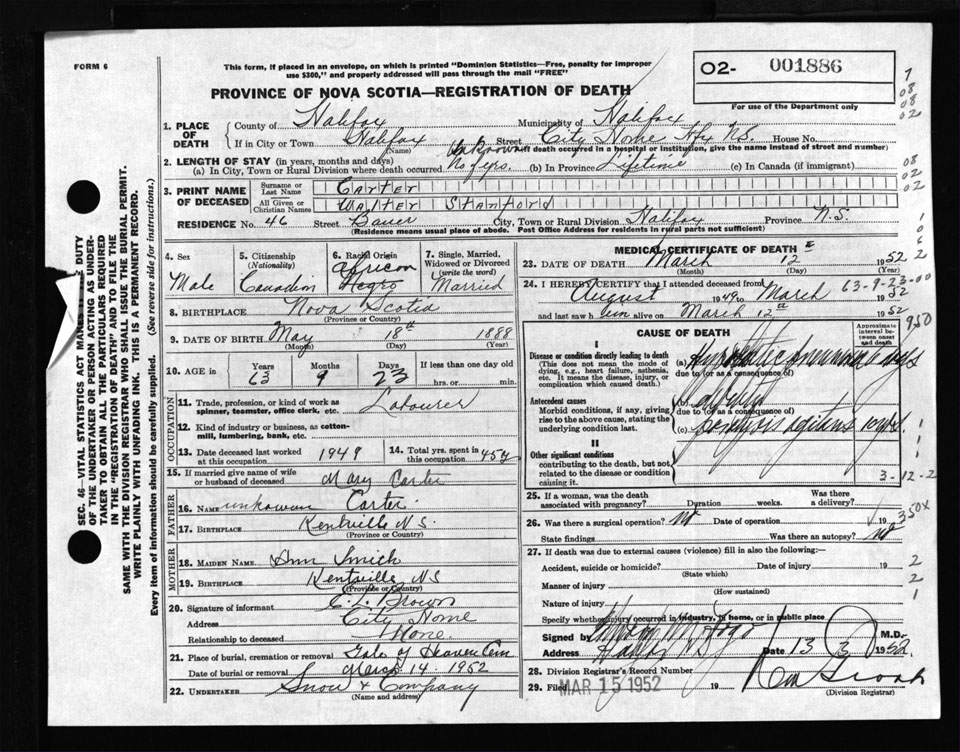 FORM 6
This form, if placed in an envelope, on which is printed "Dominion Statistics—Free, penalty for improper
use $300," and properly addressed will pass through the mail "FREE"
PROVINCE OF NOVA SCOTIA—REGISTRATION OF DEATH
O2- 001886
For use of the Department only
7
08
08
02
1. PLACE OF DEATH
County of Halifax Municipality of Halifax
If in City or Town Halifax Street City Home Hfx N.S. House No.
(Name) (If death occurred in a hospital or institution, give the name instead of street and number)
2. LENGTH OF STAY (in years, months and days)
(a) In City, Town or Rural Division where death occurred Unknown No of yrs. (b) In Province Lifetime (c) In Canada (if immigrant)
08
02
02
3. PRINT NAME OF DECEASED
Surname or Last Name Carter
All Given or Christian Names Walter Stanford
RESIDENCE No. 46 Street Bauer City, Town or Rural Division Halifax Province N.S.
(Residence means usual place of abode. Post Office Address for residents in rural parts not sufficient)
SEC. 46—VITAL STATISTICS ACT DUTY
OF THE UNDERTAKER OR PERSON ACTING AS UNDER-
TAKER TO OBTAIN ALL THE PARTICULARS REQUIRED
IN THE "REGISTRATION OF DEATH" AND TO FILE THE
SAME WITH THE DIVISION REGISTRAR WHO SHALL ISSUE THE BURIAL PERMIT.
WRITE PLAINLY WITH UNFADING INK. THIS IS A PERMANENT RECORD.
Every item of information should be carefully supplied. (See reverse side for instructions.)
4. Sex
Male
5. Citizenship
(Nationality)
Canadian
6. Racial Origin
African
Negro
7. Single, Married,
Widowed or Divorced
(write the word)
Married
8. BIRTHPLACE Nova Scotia
(Province or Country)
9. DATE OF BIRTH May 18th 1888
(Month) (Day) (Year)
10. AGE in Years Months Days If less than one day old
63 9 23 hrs. or min.
OCCUPATION
11. Trade, profession, or kind of work as
spinner, teamster, office clerk, etc. Labourer
12. Kind of industry or business, as cotton-
mill, lumbering, bank, etc.
13. Date deceased last worked
at this occupation 1949
14. Total yrs. spent in
this occupation 45 y
15. If married give name of wife
or husband of deceased Mary Carter
FATHER
16. Name unknown Carter
17. Birthplace Kentville N S.
(Province or Country)
MOTHER
18. MAIDEN NAME. Ann Smith
19. BIRTHPLACE Kentville NS
(Province or Country)
20. Signature of informant C. L. Brown
Address City Home
Relationship to deceased None.
21. Place of burial, cremation or removal Gate of Heaven Cem
Date of burial or removal March 14 - 1952
22. UNDERTAKER Snow & Company
(Name and address)
MEDICAL CERTIFICATE OF DEATH
23. DATE OF DEATH March 12 1952
(Month) (Day) (Year)
24. I HEREBY CERTIFY that I attended deceased from 63-9-23-00
August 1949 to March 1952
and last saw him alive on March 12th 1952
950
CAUSE OF DEATH
Approximate
interval be-
tween onset
and death
I
Disease or condition directly leading to death
(This does not mean the mode of
dying, e.g., heart failure, asthenia,
etc. It means the disease, injury, or
complication which caused death.)
(a) Hypostatic pneumonia 6 days
due to (or as a consequence of)
Antecedent causes
Morbid conditions, if any, giving
rise to the above cause, stating the
underlying condition last.
(b)
due to (or as a consequence of)
(c) paralysis agitans 10 yrs.
II
Other significant conditions
contributing to the death, but not
related to the disease or condition
causing it.
3-12-2
25. If a woman, was the death
associated with pregnancy? Duration weeks. Was there
a delivery?
26. Was there a surgical operation? No Date of operation 19
350X
State findings Was there an autopsy? no
27. If death was due to external causes (violence) fill in also the following:—
Accident, suicide or homicide? Date of injury 19
(State which)
Manner of injury
(How sustained)
Nature of injury
Specify whether injury occurred in industry, in home, or in public place
Signed by M.D.
Address Halifax N S Date 13 3 1952.
28. Division Registrar's Record Number
29. Filed MAR 15 1952 19
(Division Registrar)